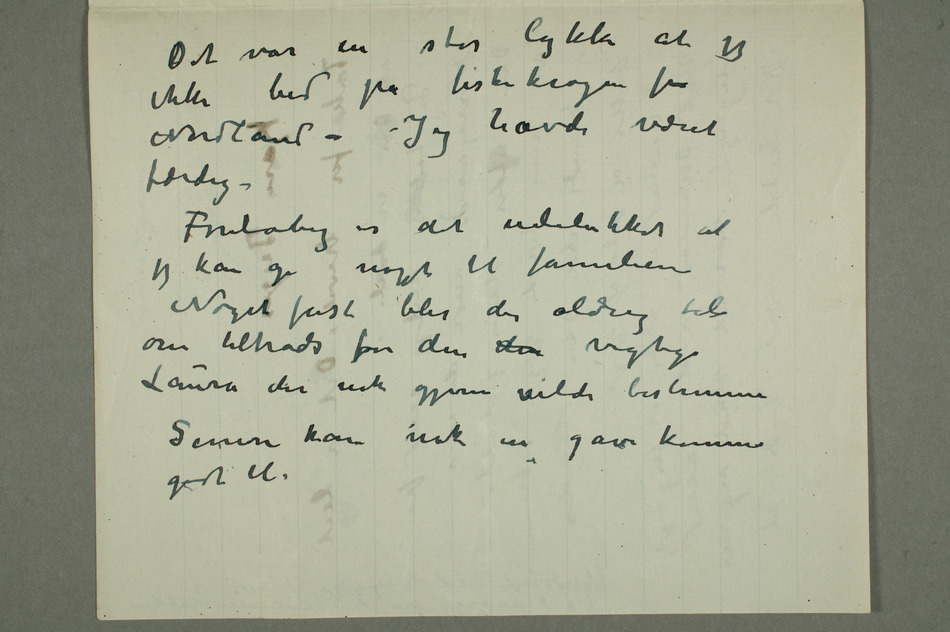 Det var en stor lykke at jeg
ikke bed på fiskekrogen fra
Nordland – Jeg havde været
færdig –
Foreløbig er det udelukket at
jeg kan gi noget til familien
Noget fast blir der aldrig tale
om tiltrods for den den vigtige
Laura der nok gjerne vilde bestemme
Senere kan nok en gave komme
godt til.